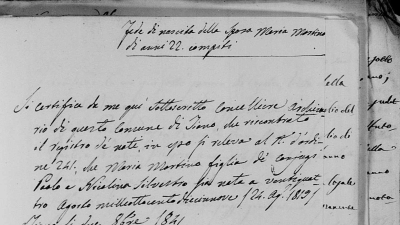 Fede di nascita della Sposa Maria Martino
di anni 22. compiti
Si certifica da me quì sottoscritto Cancelliere Archiva
rio di questo Comune di che riscontrato
il registro de' nati, in esso si rileva al N. d'ordi
ne 241. che Maria Martino figlia de' coniugi
Paolo e Nicolina Silvestro fu nata a ventiquat
tro Agosto milleottocento diecinnove (24. Ag. 1819)
8bre 1841